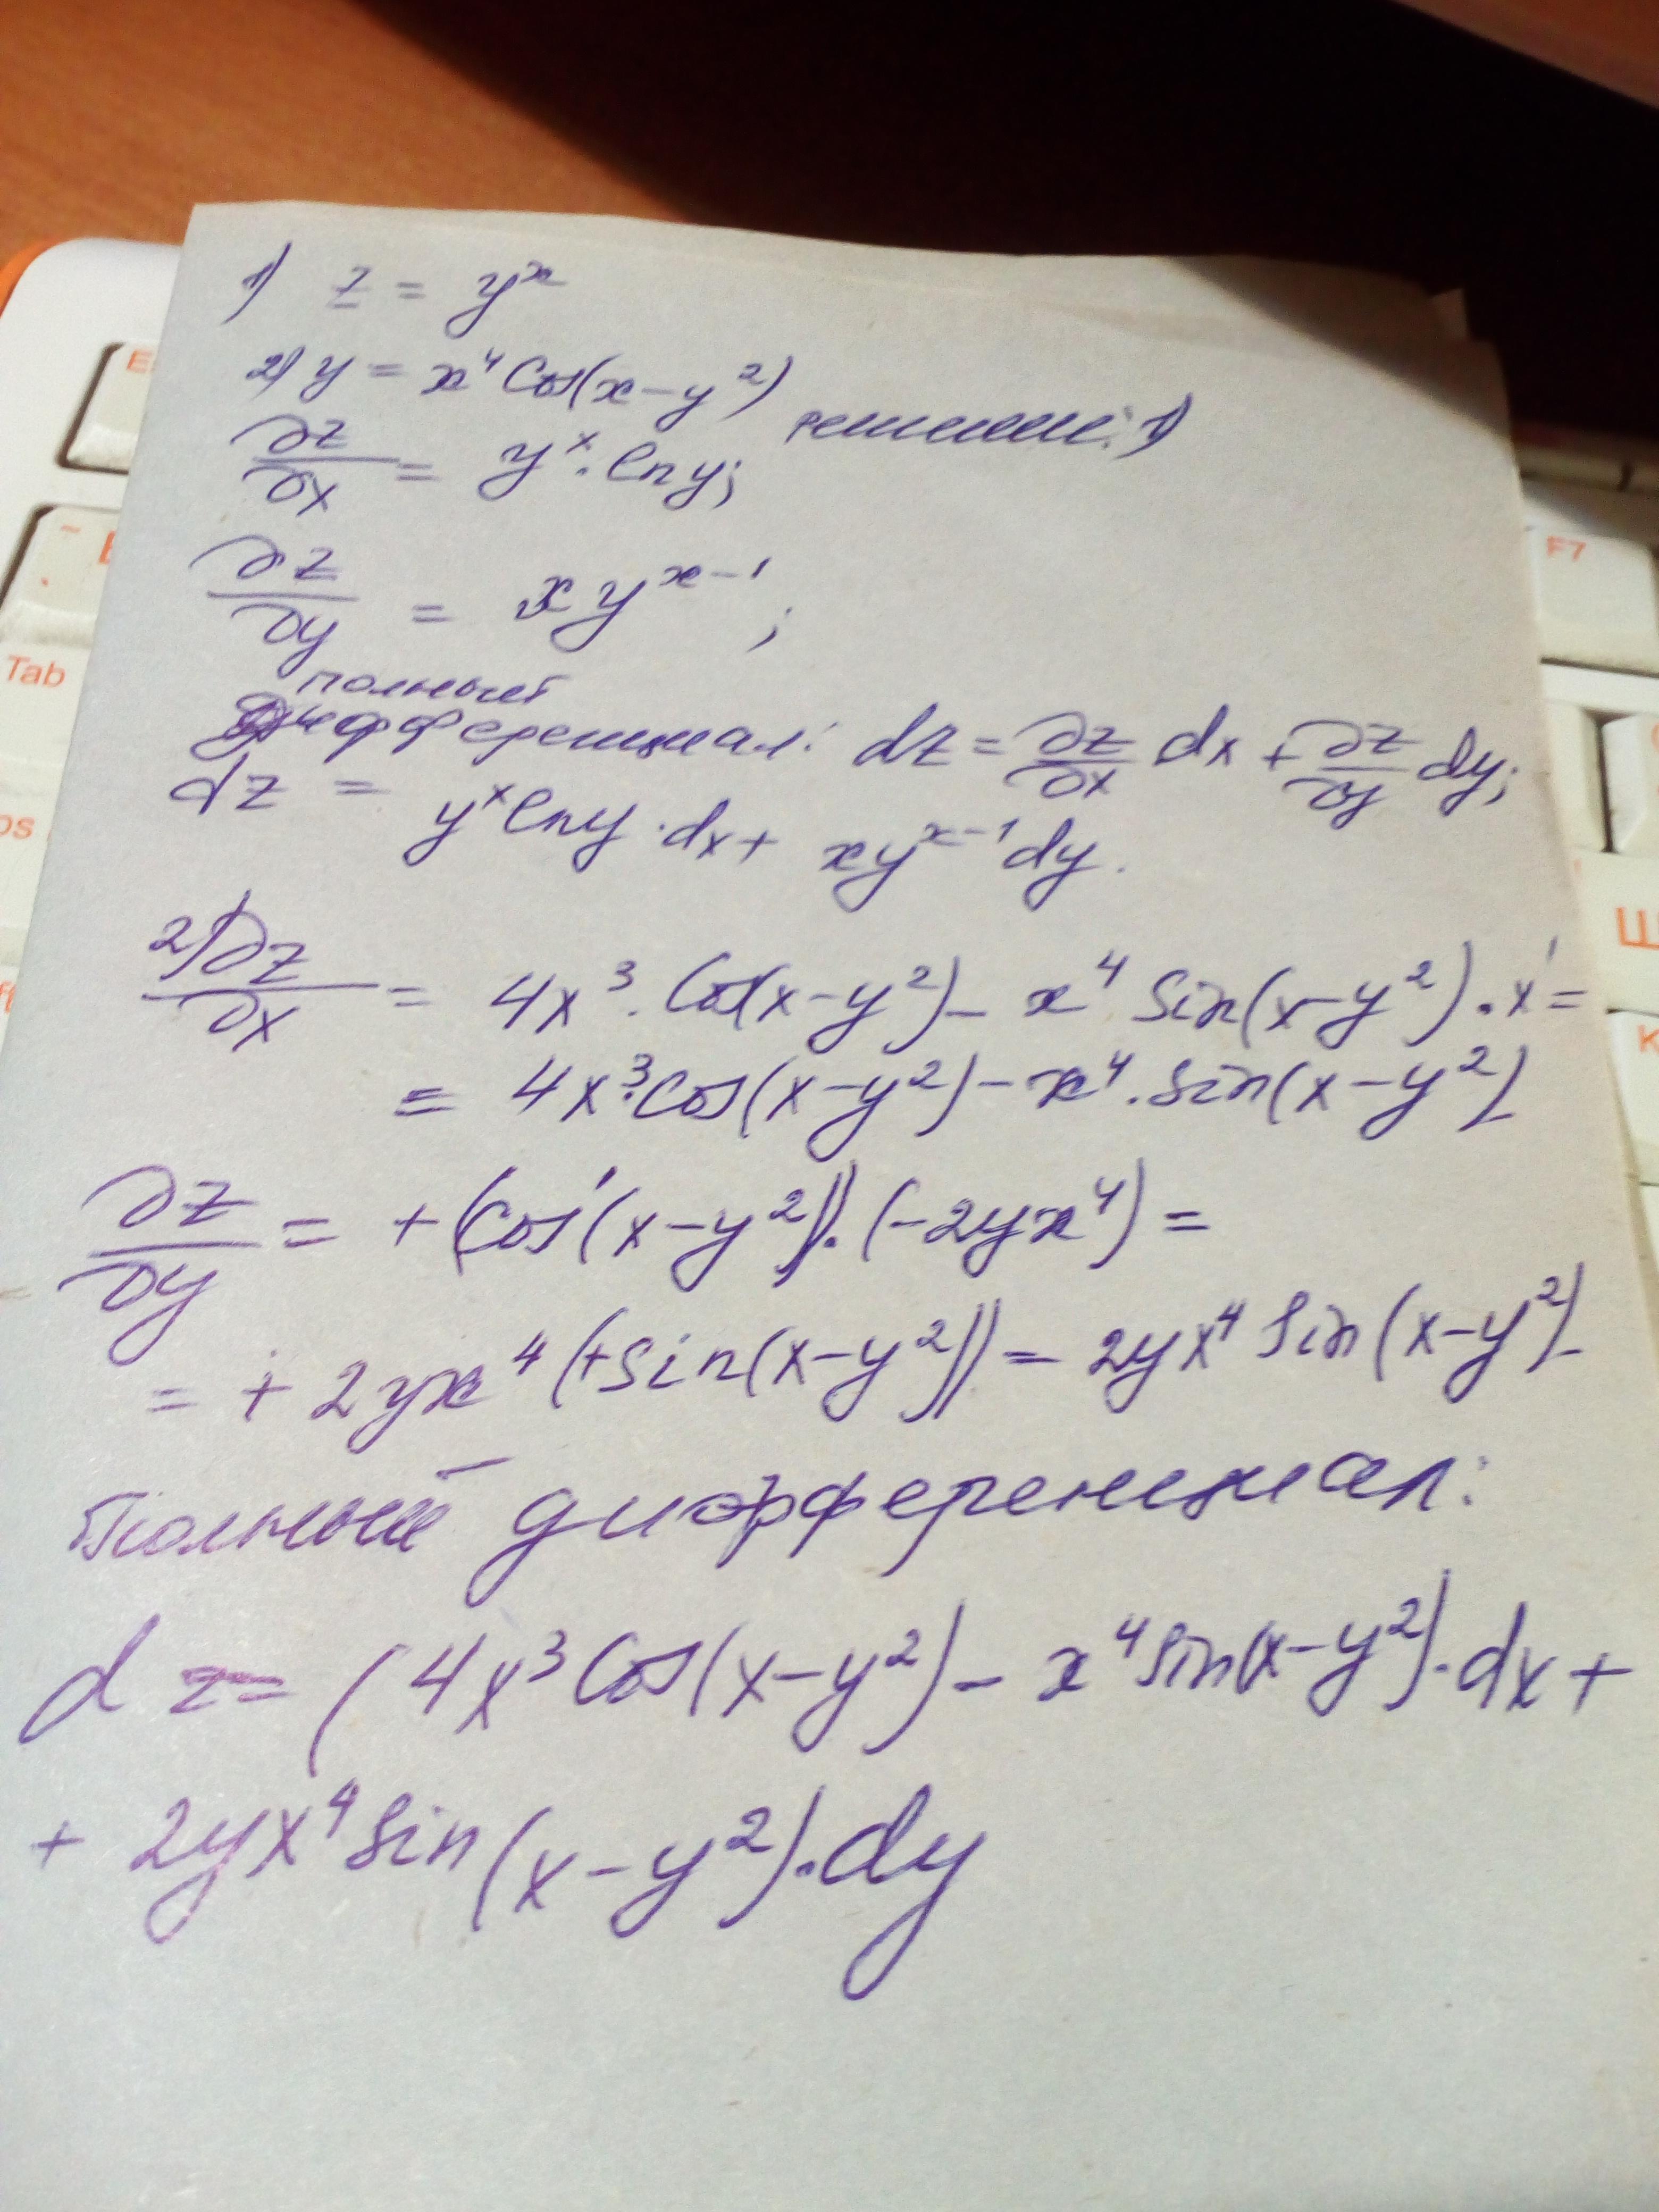 1) z = y^x
2) y = x^4 Cos(x-y^2)
решение: 1)
∂z/∂x = y^x · ln y;
∂z/∂y = x y^(x-1);
полный
дифференциал: dz = ∂z/∂x dx + ∂z/∂y dy;
dz = y^x ln y · dx + xy^(x-1) dy.
2) ∂z/∂x = 4x^3 · Cos(x-y^2) - x^4 Sin(x-y^2) · x' =
= 4x^3 · Cos(x-y^2) - x^4 · sin(x-y^2)
∂z/∂y = +(Cos'(x-y^2)) · (-2yx^4) =
= + 2yx^4 (+sin(x-y^2)) = 2yx^4 sin(x-y^2)
Полный дифференциал:
dz = (4x^3 Cos(x-y^2) - x^4 sin(x-y^2) · dx +
+ 2yx^4 sin(x-y^2) · dy
Tab
F7
Ш
К